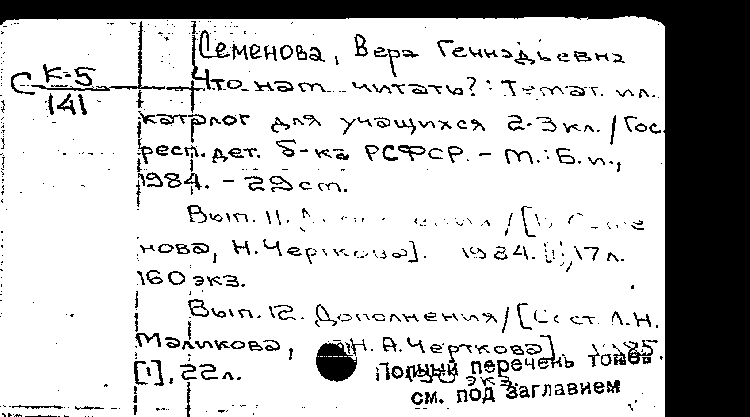 Семенова, Вера Геннадьевна
С К-5
141
Что нам читать? : Темат. ил.
каталог для учащихся 2-3 кл. / Гос.
респ. дет. б-ка РСФСР. - М. : Б. и.,
1984. - 29 см.
Вып. 11.
нова, Н. Черткова]. 1984. [1], 17 л.
160 экз.
Вып. 12. Дополнения / [Сост. Л.Н.
Маликова, Н. А. Черткова]. 1985.
[1], 22 л. экз.
Полный перечень томов
см. под заглавием